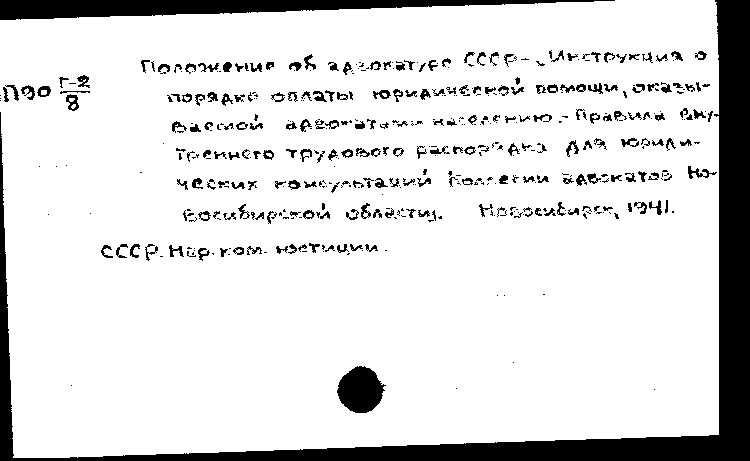 Положение об адвокатуре СССР.-Инструкция о
П90 Г-2/8
порядке оплаты юридической помощи, оказы-
ваемой адвокатами населению.-Правила вну-
треннего трудового распорядка для юриди-
ческих консультаций Коллегии адвокатов Но-
восибирской области. Новосибирск, 1941.
СССР. Нар. ком. юстиции.